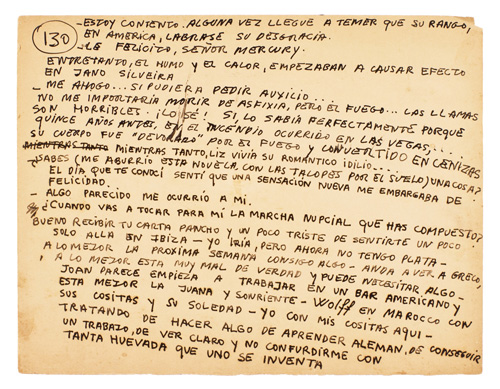 130
- ESTOY CONTENTO. ALGUNA VEZ LLEGUE A TEMER QUE SU RANGO,
EN AMERICA, LABRASE SU DESGRACIA.
- LE FELICITO, SEÑOR MERCURY.
ENTRETANTO, EL HUMO Y EL CALOR, EMPEZABAN A CAUSAR EFECTO
EN JANO SILVEIRA
- ME AHOGO... SI PUDIERA PEDIR AUXILIO....
NO ME IMPORTARIA MORIR DE ASFIXIA, PERO EL FUEGO... LAS LLAMAS
SON HORRIBLES. ¡LO SÉ! SI, LO SABIA PERFECTAMENTE PORQUE
QUINCE AÑOS ANTES, EN EL INCENDIO OCURRIDO EN LAS VEGAS,...
SU CUERPO FUE "DEVORADO" POR EL FUEGO Y CONVERTIDO EN CENIZAS
MIENTRAS TANTO MIENTRAS TANTO, LIZ VIVIA SU ROMANTICO IDILIO....
- ¿SABES (ME ABURRIO ESTA NOVELA, CON LAS TALOPES POR EL SUELO) UNA COSA?
EL DIA QUE TE CONOCÍ SENTÍ QUE UNA SENSACIÓN NUEVA ME EMBARGABA DE
FELICIDAD.
- ALGO PARECIDO ME OCURRIO A MI.
¿CUANDO VAS A TOCAR PARA MÍ LA MARCHA NUPCIAL QUE HAS COMPUESTO?
BUENO RECIBIR TU CARTA PANCHO Y UN POCO TRISTE DE SENTIRTE UN POCO
SOLO ALLA EN IBIZA - YO IRIA, PERO AHORA NO TENGO PLATA -
A LO MEJOR LA PROXIMA SEMANA CONSIGO ALGO - ANDA A VER A GRECO,
A LO MEJOR ESTA MUY MAL DE VERDAD Y PUEDE NECESITAR ALGO -
JOAN PARECE EMPIEZA A TRABAJAR EN UN BAR AMERICANO Y
ESTA MEJOR LA JUANA Y SONRIENTE - WOLFF EN MAROCCO CON
SUS COSITAS Y SU SOLEDAD - YO CON MIS COSITAS AQUI -
TRATANDO DE HACER ALGO DE APRENDER ALEMAN, DE CONSEGUIR
UN TRABAJO, DE VER CLARO Y NO CONFUNDIRME CON
TANTA HUEVADA QUE UNO SE INVENTA